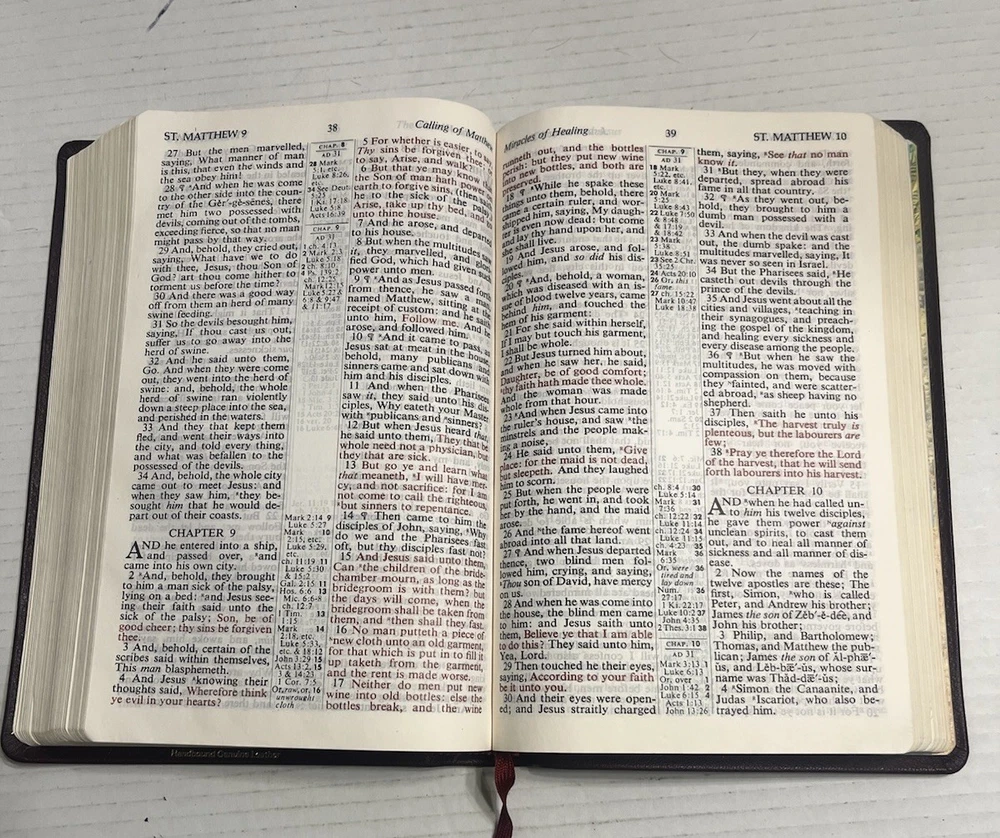 ST. MATTHEW 9
38
Calling of Matthew
27 But the men marvelled,
saying, What manner of man
is this, that even the winds and
the sea obey him!
28 ¶ And when he was come
to the other side into the coun-
try of the Gĕr´-gĕ-sēnes, there
met him two possessed with
devils, coming out of the tombs,
exceeding fierce, so that no man
might pass by that way.
29 And, behold, they cried out,
saying, What have we to do
with thee, Jesus, thou Son of
God? art thou come hither to
torment us before the time?
30 And there was a good way
off from them an herd of many
swine feeding.
31 So the devils besought him,
saying, If thou cast us out,
suffer us to go away into the
herd of swine.
32 And he said unto them,
Go. And when they were come
out, they went into the herd of
swine: and, behold, the whole
herd of swine ran violently
down a steep place into the sea,
and perished in the waters.
33 And they that kept them
fled, and went their ways into
the city, and told every thing,
and what was befallen to the
possessed of the devils.
34 And, behold, the whole city
came out to meet Jesus: and
when they saw him, they be-
sought him that he would de-
part out of their coasts.
CHAPTER 9
AND he entered into a ship,
and passed over, and
came into his own city.
2 And, behold, they brought
to him a man sick of the palsy,
lying on a bed: and Jesus see-
ing their faith said unto the
sick of the palsy; Son, be of
good cheer; thy sins be forgiven
thee.
3 And, behold, certain of the
scribes said within themselves,
This man blasphemeth.
4 And Jesus knowing their
thoughts said, Wherefore think
ye evil in your hearts?
CHAP. 8
AD 31
28 Mark
5:1, etc.
Luke 8:26,
etc.
34 See Deut.
5:25
1 Ki. 17:18
Luke 5:8
Acts 16:39
CHAP. 9
AD 31
1 ch. 4:13
2 Mark 2:3
Luke 5:18
2 ch. 8:10
4 Ps. 139:2
Mark 12:15
Luke 5:22
6:8 & 9:47
& 11:17
Mark 2:14 9
Luke 5:27
Mark 10
2:15, etc.
Luke 5:29,
etc.
ch. 11:19 11
Luke 5:30
& 15:2
Gal. 2:15 11
Hos. 6:6 13
Mic. 6:6-8
ch. 12:7
1 Tim.
1:15
Mark 14
2:18, etc.
Luke 5:33,
etc. & 18:12
John 3:29 15
Acts 13:2, 15
3 & 14:23
1 Cor. 7:5
Or, raw, or, 16
unwrought
cloth
5 For whether is easier, to say,
Thy sins be forgiven thee;
to say, Arise, and walk?
6 But that ye may know
the Son of man hath power
earth to forgive sins, then
he to the sick of the palsy,
Arise, take up thy bed, and
unto thine house.
7 And he arose, and departed
to his house.
8 But when the multitudes saw
it, they marvelled, and glori-
fied God, which had given such
power unto men.
9 ¶ And as Jesus passed forth
from thence, he saw a man
named Matthew, sitting at the
receipt of custom: and he saith
unto him, Follow me. And he
arose, and followed him.
10 ¶ And it came to pass, as
Jesus sat at meat in the house,
behold, many publicans and
sinners came and sat down with
him and his disciples.
11 And when the Pharisees
saw it, they said unto his dis-
ciples, Why eateth your Master
with publicans and sinners?
12 But when Jesus heard that,
he said unto them, They that be
whole need not a physician, but
they that are sick.
13 But go ye and learn what
that meaneth, I will have mer-
cy, and not sacrifice: for I am
not come to call the righteous,
but sinners to repentance.
14 ¶ Then came to him the
disciples of John, saying, Why
do we and the Pharisees fast
oft, but thy disciples fast not?
15 And Jesus said unto them,
Can the children of the bride-
chamber mourn, as long as the
bridegroom is with them? but
the days will come, when the
bridegroom shall be taken from
them, and then shall they fast.
16 No man putteth a piece of
new cloth unto an old garment,
for that which is put in to fill it
up taketh from the garment,
and the rent is made worse.
17 Neither do men put new
wine into old bottles: else the
bottles break, and the wine
Handbound Genuine Leather
Miracles of Healing
39
ST. MATTHEW 10
runneth out, and the bottles
perish: but they put new wine
into new bottles, and both are
preserved.
18 ¶ While he spake these
things unto them, behold, there
came a certain ruler, and wor-
shipped him, saying, My daugh-
ter is even now dead: but come
and lay thy hand upon her, and
she shall live.
19 And Jesus arose, and fol-
lowed him, and so did his dis-
ciples.
20 ¶ And, behold, a woman,
which was diseased with an is-
sue of blood twelve years, came
behind him, and touched the
hem of his garment:
21 For she said within herself,
If I may but touch his garment,
I shall be whole.
22 But Jesus turned him about,
and when he saw her, he said,
Daughter, be of good comfort;
thy faith hath made thee whole.
And the woman was made
whole from that hour.
23 And when Jesus came into
the ruler's house, and saw the
minstrels and the people mak-
ing a noise,
24 He said unto them, Give
place: for the maid is not dead,
but sleepeth. And they laughed
him to scorn.
25 But when the people were
put forth, he went in, and took
her by the hand, and the maid
arose.
26 And the fame hereof went
abroad into all that land.
27 ¶ And when Jesus departed
thence, two blind men fol-
lowed him, crying, and saying,
Thou son of David, have mercy
on us.
28 And when he was come into
the house, the blind men came
to him: and Jesus saith unto
them, Believe ye that I am able
to do this? They said unto him,
Yea, Lord.
29 Then touched he their eyes,
saying, According to your faith
be it unto you.
30 And their eyes were open-
ed; and Jesus straitly charged
CHAP. 9
AD 31
18 Mark
5:22, etc.
Luke 8:41,
etc.
20 Mark
5:25
Luke 8:43
22 Luke 7:50
& 8:48
& 17:19
& 18:42
23 Mark
5:38
Luke 8:51
23 See 2 Chr.
35:25
24 Acts 20:10
26 Or, this
fame
27 ch. 15:22
Mark 10:47
Luke 18:38
ch. 8:4 30
Luke 5:14
Mark 31
7:36
ch. 12:22 32
Luke 11:14
ch. 12:24 34
Luke 11:15
ch. 4:23 35
Mark 36
6:35
Or, were 36
tired and
lay down
Num. 36
27:17
1 Ki. 22:17
Luke 10:2 37
John 4:35
2 Thes. 3:1 38
CHAP. 10
AD 31
Mark 3:13 1
Luke 6:13
Or, over
John 1:42 2
Luke 6:15 4
Acts 1:13
John 13:26
them, saying, See that no man
know it.
31 But they, when they were
departed, spread abroad his
fame in all that country.
32 ¶ As they went out, be-
hold, they brought to him a
dumb man possessed with a
devil.
33 And when the devil was cast
out, the dumb spake: and the
multitudes marvelled, saying, It
was never so seen in Israel.
34 But the Pharisees said, He
casteth out devils through the
prince of the devils.
35 And Jesus went about all the
cities and villages, teaching in
their synagogues, and preach-
ing the gospel of the kingdom,
and healing every sickness and
every disease among the people.
36 ¶ But when he saw the
multitudes, he was moved with
compassion on them, because
they fainted, and were scatter-
ed abroad, as sheep having no
shepherd.
37 Then saith he unto his
disciples, The harvest truly is
plenteous, but the labourers are
few;
38 Pray ye therefore the Lord
of the harvest, that he will send
forth labourers into his harvest.
CHAPTER 10
AND when he had called un-
to him his twelve disciples,
he gave them power against
unclean spirits, to cast them
out, and to heal all manner of
sickness and all manner of dis-
ease.
2 Now the names of the
twelve apostles are these; The
first, Simon, who is called
Peter, and Andrew his brother;
James the son of Zĕb´-ĕ-dēe, and
John his brother;
3 Philip, and Bartholomew;
Thomas, and Matthew the pub-
lican; James the son of Ăl-phæ´-
ŭs, and Lĕb-bæ´-ŭs, whose sur-
name was Thăd-dæ´-ŭs;
4 Simon the Canaanite, and
Judas Iscariot, who also be-
trayed him.